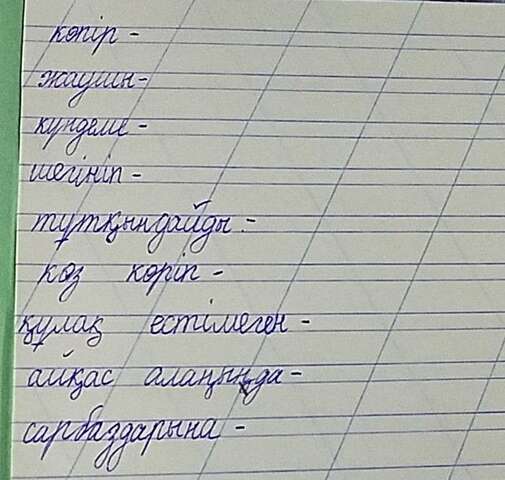 көпір -
жаушы -
күндеме -
шегініп -
тұтқындайды -
көз көріп -
құлақ естімеген -
айқас алаңында -
сарбаздарына -